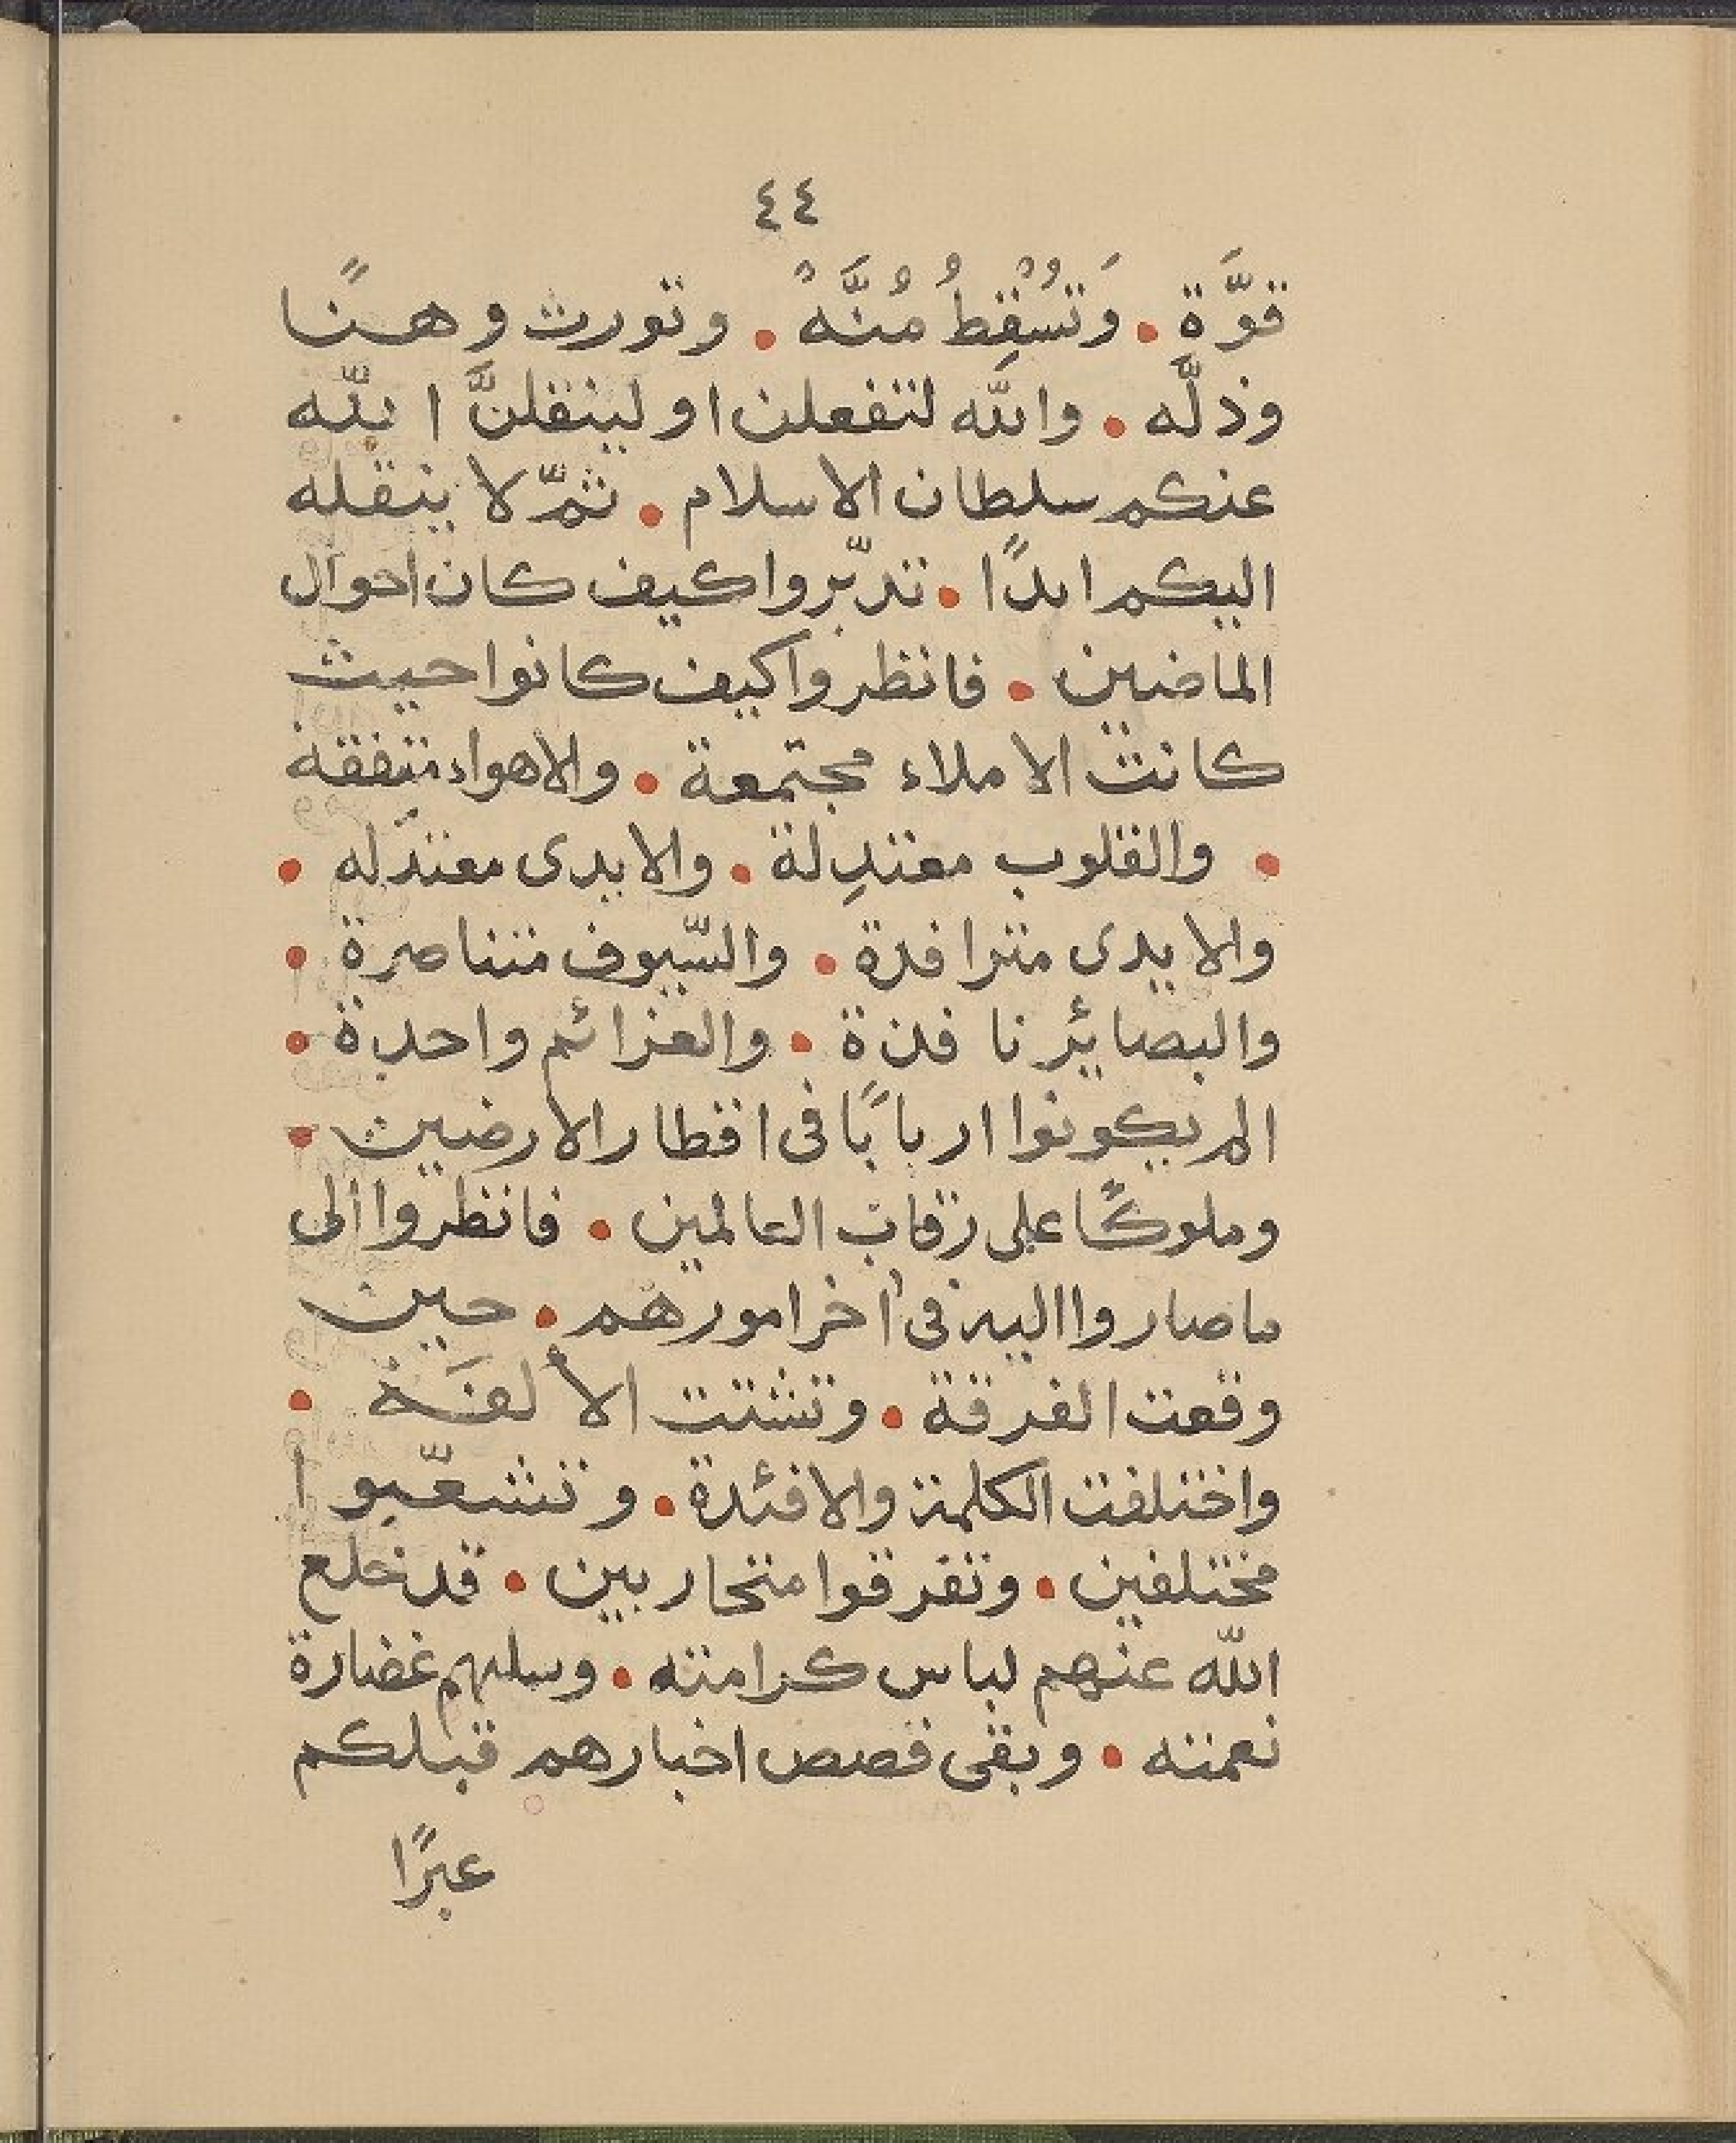 ٤٤
قوَّة • وَتُسْقِطُ مُنَّةً • وتورث وهنًا
وذلَّه • والله لتفعلن او لينقلنَّ الله
عنكم سلطان الاسلام • ثمّ لا ينقله
اليكم ابدًا • تدبّروا كيف كان احوال
الماضين • فانظروا كيف كانوا حيث
كانت الاملاء مجتمعة • والاهواء متفقة
• والقلوب معتدِلة • والايدى معتدَله •
والايدى مترافدة • والسّيوف متناصرة •
والبصائر نافذة • والعزائم واحدة •
الم يكونوا اربابًا فى اقطار الارضين •
وملوكًا على رقاب العالمين • فانظروا الى
ما صاروا اليه فى اخر امورهم • حين
وقعت الفرقة • وتشتت الألفَة •
واختلفت الكلمة والافئدة • وتشعّبوا
مختلفين • وتفرقوا متحاربين • قد خلع
الله عنهم لباس كرامته • وسلبهم غضارة
نعمته • وبقى قصص اخبارهم قبلكم
عبرًا